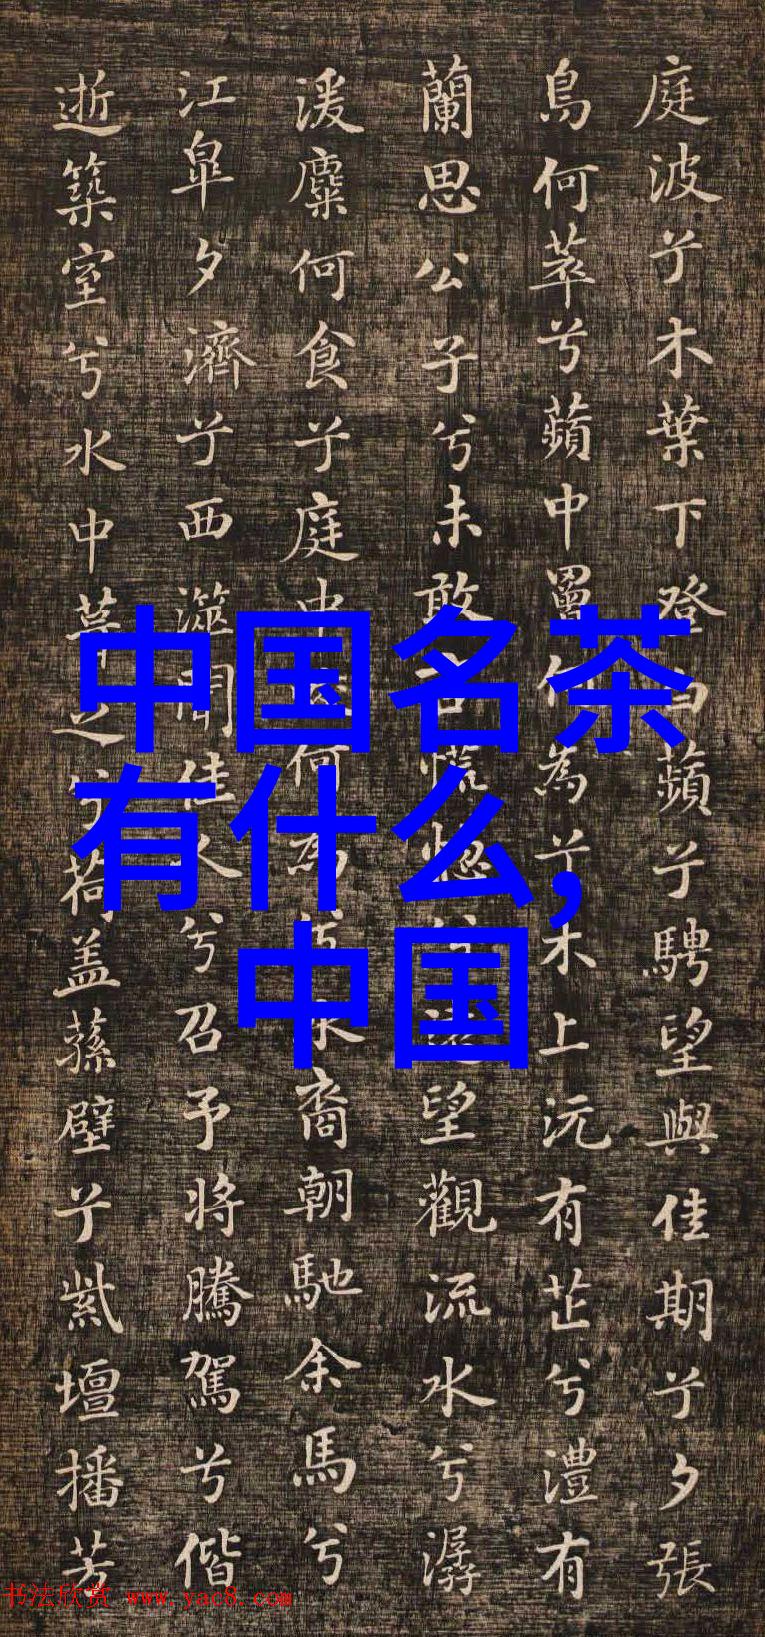 庭波兮木葉下登白蘋兮騁望與佳期兮夕張
鳥何萃兮蘋中罾何為兮木上沅有芷兮澧有
蘭思公子兮未敢言慌惚兮遠望觀流水兮潺
湲麋何食兮庭中蛟何為兮水裔朝馳余馬兮
江皐夕濟兮西澨聞佳人兮召予将騰駕兮偕
逝築室兮水中葺之兮荷盖蓀壁兮紫壇播芳
中国名茶
有什么,
中国
书法欣赏 www.yac8.com